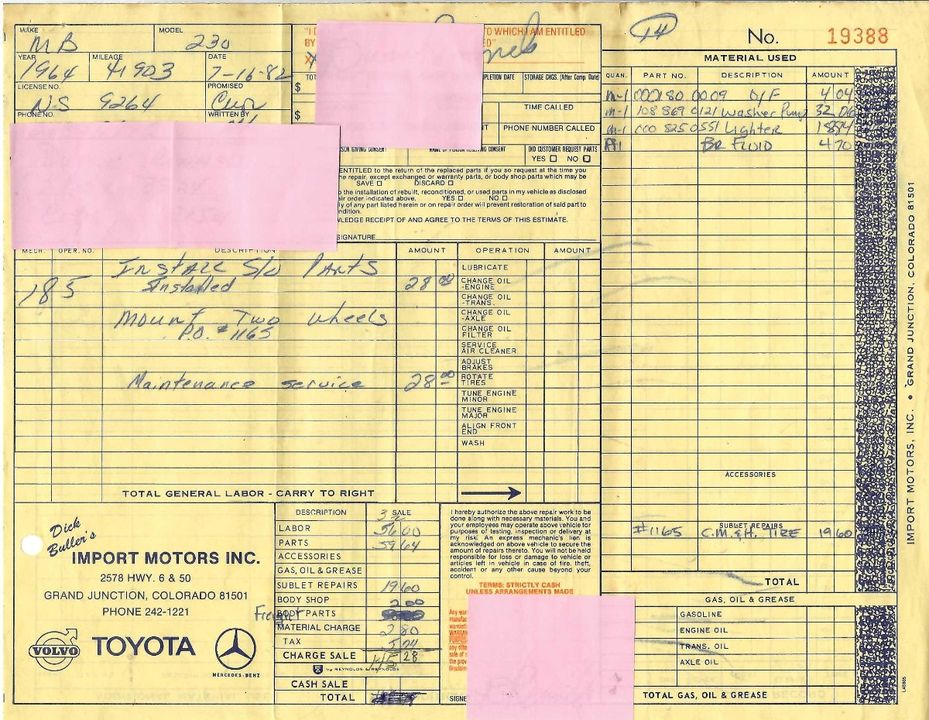 MAKE MB
MODEL 230
YEAR 1964
MILEAGE 41903
DATE 7-16-82
LICENSE NO. N-S 9264
PROMISED
PHONE NO.
WRITTEN BY
"I D
TO WHICH I AM ENTITLED
BY
ED"
X
TOT
PLETION DATE
STORAGE CHGS. (After Comp. Date)
$
$
TIME CALLED
NT
PHONE NUMBER CALLED
RSON GIVING CONSENT
NAME OF PERSON RECEIVING CONSENT
DID CUSTOMER REQUEST PARTS
YES ☐ NO ☐
ENTITLED to the return of the replaced parts if you so request at the time you
he repair, except exchanged or warranty parts, or body shop parts which may be
SAVE ☐ DISCARD ☐
o the installation of rebuilt, reconditioned, or used parts in my vehicle as disclosed
ir order indicated above. YES ☐ NO ☐
ly of any part listed herein or on repair order will prevent restoration of said part to
ndition.
WLEDGE RECEIPT OF AND AGREE TO THE TERMS OF THIS ESTIMATE.
SIGNATURE
No. 19388
MATERIAL USED
QUAN. PART NO. DESCRIPTION AMOUNT
m-1 000 180 00 09 O/F 4 04
m-1 108 869 0121 Washer Pump 32 06
m-1 000 825 0551 Lighter 18 84
BR FLUID 4 70
ACCESSORIES
SUBLET REPAIRS
#1165 C.M.&H. TIRE 19 60
TOTAL
GAS, OIL & GREASE
GASOLINE
ENGINE OIL
TRANS. OIL
AXLE OIL
TOTAL GAS, OIL & GREASE
IMPORT MOTORS, INC. • GRAND JUNCTION, COLORADO 81501
MECH. OPER. NO. DESCRIPTION AMOUNT
OPERATION AMOUNT
Install S/O Parts
185 Installed 28 00
Mount Two Wheels
P.O. #1165
Maintenance service 28 00
LUBRICATE
CHANGE OIL
-ENGINE
CHANGE OIL
-TRANS.
CHANGE OIL
-AXLE
CHANGE OIL
FILTER
SERVICE
AIR CLEANER
ADJUST
BRAKES
ROTATE
TIRES
TUNE ENGINE
MINOR
TUNE ENGINE
MAJOR
ALIGN FRONT
END
WASH
TOTAL GENERAL LABOR - CARRY TO RIGHT
Dick
Buller's
IMPORT MOTORS INC.
2578 HWY. 6 & 50
GRAND JUNCTION, COLORADO 81501
PHONE 242-1221
VOLVO
TOYOTA
MERCEDES-BENZ
DESCRIPTION SALE
LABOR 56 00
PARTS 59 64
ACCESSORIES
GAS, OIL & GREASE
SUBLET REPAIRS 19 60
BODY SHOP 2 00
Freight BODY PARTS
MATERIAL CHARGE 2 80
TAX
CHARGE SALE
by REYNOLDS & REYNOLDS
CASH SALE
TOTAL
I hereby authorize the above repair work to be
done along with necessary materials. You and
your employees may operate above vehicle for
purposes of testing, inspection or delivery at
my risk. An express mechanic's lien is
acknowledged on above vehicle to secure the
amount of repairs thereto. You will not be held
responsible for loss or damage to vehicle or
articles left in vehicle in case of fire, theft,
accident or any other cause beyond your
control.
TERMS: STRICTLY CASH
UNLESS ARRANGEMENTS MADE
SIGNE